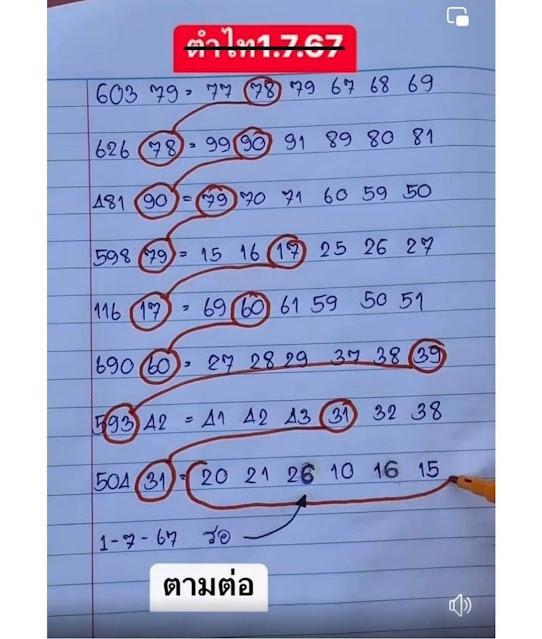 ตำไท1.7.67
603 79 = 77 78 79 67 68 69
626 78 = 99 90 91 89 80 81
481 90 = 79 70 71 60 59 50
598 79 = 15 16 17 25 26 27
116 17 = 69 60 61 59 50 51
690 60 = 27 28 29 37 38 39
593 42 = 41 42 43 31 32 38
504 31 = 20 21 26 10 16 15
1-7-67 รอ
ตามต่อ